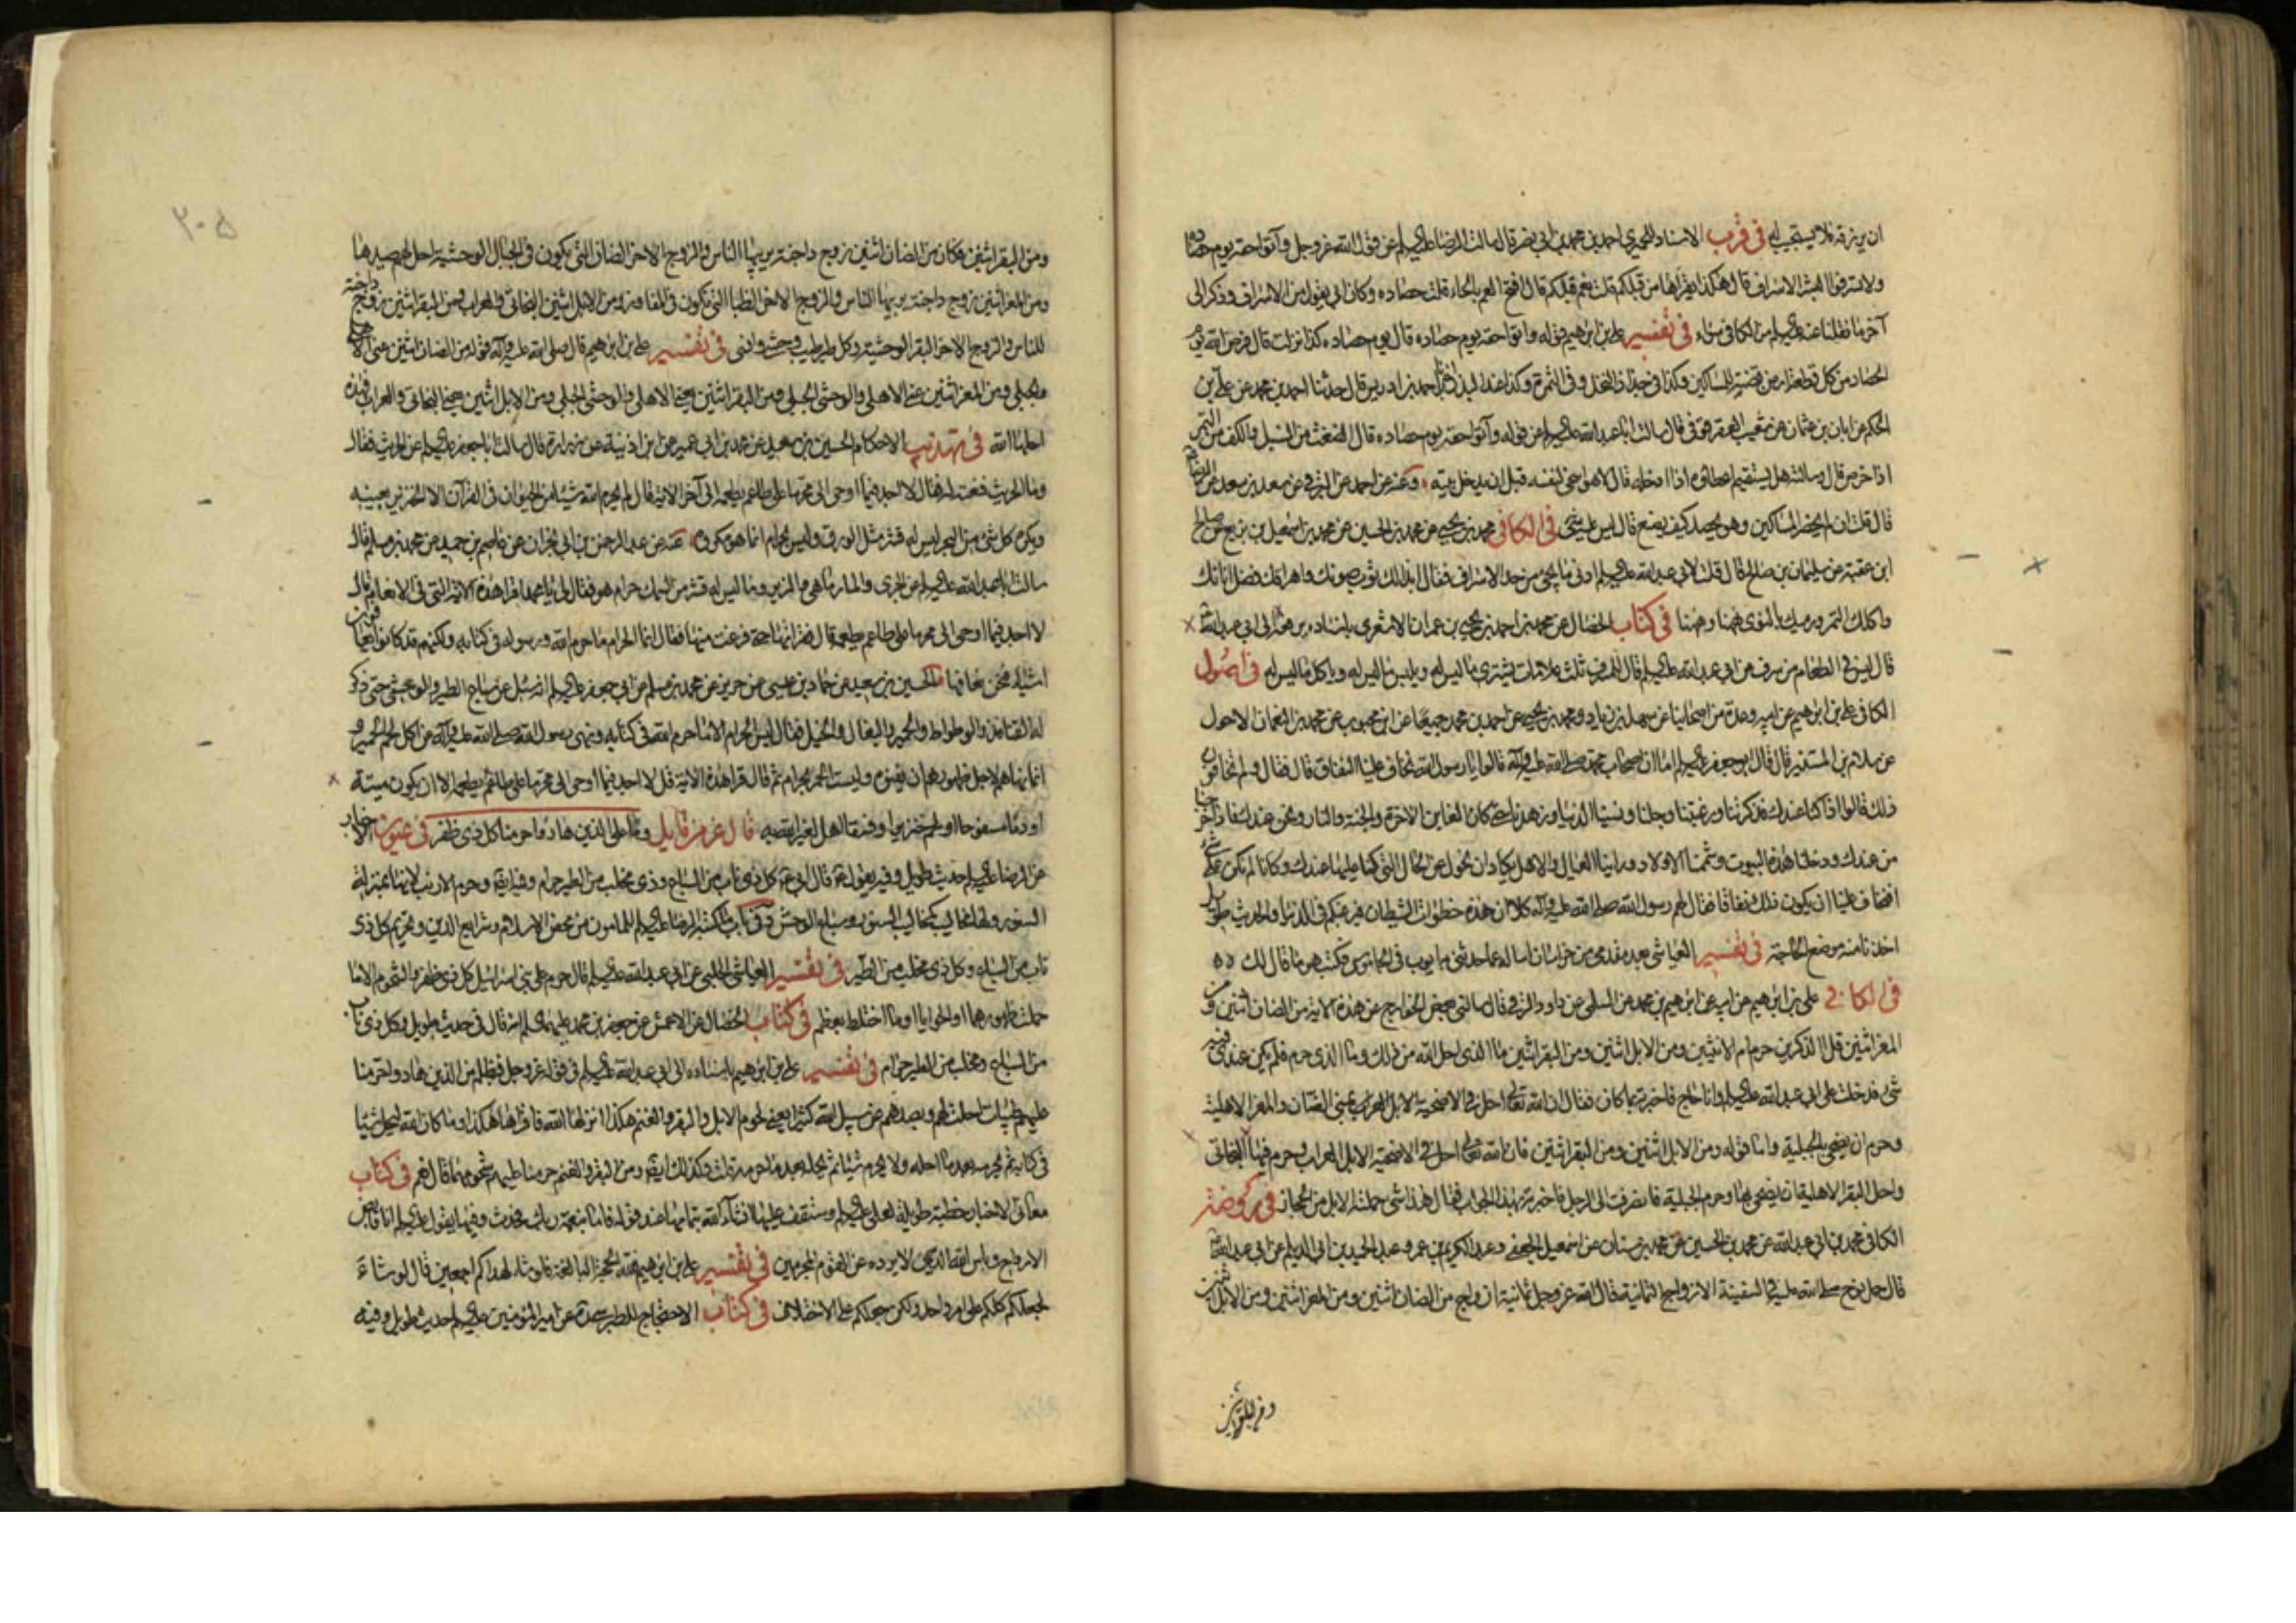 ان يرزقه فلا يستجيب له في قرب الاسناد للحميري احمد بن محمد بن ابي نصر قال سالت الرضا عليه السلم عن قول الله عز وجل وآتوا حقه يوم حصاده
ولا تسرفوا قال هكذا يقرأها من قبلكم قلت نعم قال افتح الفم بالحاء قلت حصاده وكان ابي يقول من الاسراف وذكر الى
آخر ما نقلنا عنه عليه السلم من الكافي سواء في تفسير علي بن ابرهيم قوله وآتوا حقه يوم حصاده قال يوم حصاده كذا نزلت قال فرض الله يوم
الحصاد من كل قطعة ارض قبضة للمساكين وكذا في جذاذ النخل وفي التمرة وكذا عند البذر احمد بن ادريس قال حدثنا احمد بن محمد عن علي بن
الحكم عن ابان بن عثمان عن شعيب العقرقوفي قال سالت ابا عبد الله عليه السلم عن قوله وآتوا حقه يوم حصاده قال الضغث من السنبل والكف من التمر
اذا خرص قال وسالته هل يستقيم اعطاؤه اذا ادخله قال لا هو اسخى لنفسه قبل ان يدخل بيته وعنه عن احمد عن البرقي عن سعد بن سعد عن الرضا
قال قلت ان لم يحضر المساكين وهو يحصد كيف يصنع قال ليس عليه شئ في الكافي محمد بن يحيى عن محمد بن الحسين عن محمد بن اسمعيل بن بزيع عن صالح
ابن عقبة عن سليمان بن صالح قال قلت لابي عبد الله عليه السلم ادنى ما يجئ من حد الاسراف فقال ابذالك ثوب صونك واهراقك فضل انائك
واكلك التمر ورميك بالنوى ههنا وههنا في كتاب الخصال عن محمد بن احمد بن يحيى بن عمران الاشعري باسناده يرفعه الى ابي عبد الله
قال ليس في الطعام من سرف عن ابي عبد الله عليه السلم قال للمسرف ثلث علامات يشتري ما ليس له ويلبس ما ليس له وياكل ما ليس له في اصول
الكافي علي بن ابرهيم عن ابيه وعدة من اصحابنا عن سهل بن زياد ومحمد بن يحيى عن احمد بن محمد جميعا عن ابن محبوب عن محمد بن النعمان الاحول
عن سلام بن المستنير قال قال ابو جعفر عليه السلم اما ان اصحاب محمد صلى الله عليه وآله قالوا يا رسول الله نخاف علينا النفاق قال فقال ولم تخافون
ذلك قالوا اذا كنا عندك فذكرتنا ورغبتنا وجلنا ونسينا الدنيا وزهدنا حتى كانا نعاين الاخرة والجنة والنار ونحن عندك فاذا خرجنا
من عندك ودخلنا هذه البيوت وشممنا الاولاد وراينا العيال والاهل يكاد ان نحول عن الحال التي كنا عليها عندك وكانا لم نكن على شئ
افتخاف علينا ان يكون ذلك نفاقا فقال لهم رسول الله صلى الله عليه وآله كلا ان هذه خطوات الشيطان فيرغبكم في الدنيا والحديث طويل
اخذنا منه موضع الحاجة في تفسير العياشي
في الكافي علي بن ابرهيم عن ابيه عن ابرهيم بن محمد عن السلمي عن داود الرقي قال سالني بعض الخوارج عن هذه الاية من الضان اثنين ومن
المعز اثنين قل الذكرين حرم ام الانثيين ومن الابل اثنين ومن البقر اثنين ما الذي احل الله من ذلك وما الذي حرم فلم يكن عندي فيه
شئ فدخلت على ابي عبد الله عليه السلم وانا حاج فاخبرته بما كان فقال ان الله تعالى احل في الاضحية بمنى الضان والمعز الاهلية
وحرم ان يضحى بالجبلية واما قوله ومن الابل اثنين ومن البقر اثنين فان الله تعالى احل في الاضحية الابل العراب وحرم فيها البخاتي
واحل البقر الاهلية ان يضحى بها وحرم الجبلية فانصرفت الى الرجل فاخبرته بهذا الجواب فقال هذا شئ حملته الابل من الحجاز في روضة
الكافي محمد بن ابي عبد الله عن محمد بن الحسين عن محمد بن سنان عن اسمعيل الجعفي وعبد الكريم بن عمرو وعبد الحميد بن ابي الديلم عن ابي عبد الله
قال حمل نوح صلى الله عليه في السفينة الازواج الثمانية قال الله عز وجل ثمانية ازواج من الضان اثنين ومن المعز اثنين ومن الابل اثنين
ومن البقر اثنين
٢٠٥
ومن البقر اثنين فكان من الضان اثنين زوج داجنة يربيها الناس والزوج الاخر الضان التي يكون في الجبال الوحشية احل لهم صيدها
ومن المعز اثنين زوج داجنة يربيها الناس والزوج الاخر الظباء التي تكون في المفاوز ومن الابل اثنين البخاتي والعراب ومن البقر اثنين زوج داجنة
للناس والزوج الاخر البقر الوحشية وكل طير طيب وحشي وانسي في تفسير علي بن ابرهيم قال صلى الله عليه وآله قوله من الضان اثنين عنى الاهلي
والجبلي ومن المعز اثنين عنى الاهلي والوحشي الجبلي ومن البقر اثنين يعني الاهلي والوحشي الجبلي ومن الابل اثنين يعني البخاتي والعراب فهذه
احلها الله في تهذيب الاحكام الحسين بن سعيد عن محمد بن ابي عمير عن ابن اذينة عن زرارة قال سالت ابا جعفر عليه السلم عن الجريث فقال
وما الجريث فنعته له فقال لا اجد فيما اوحي الي محرما على طاعم يطعمه الى آخر الاية قال لم يحرم الله شيئا من الحيوان في القرآن الا الخنزير بعينه
ويكره كل شئ من البحر ليس له قشر مثل الورق وليس بحرام انما هو مكروه عنه عن عبد الرحمن بن ابي نجران عن عاصم بن حميد عن محمد بن مسلم قال
سالت ابا عبد الله عليه السلم عن الجري والمارماهي والزمير وما ليس له قشر من السمك حرام هو فقال لي يا محمد اقرا هذه الاية التي في الانعام قل
لا اجد فيما اوحي الي محرما على طاعم يطعمه قال فقراتها حتى فرغت منها فقال انما الحرام ما حرم الله ورسوله في كتابه ولكنهم قد كانوا يعافون
اشياء فنحن نعافها الحسين بن سعيد عن حماد بن عيسى عن حريز عن محمد بن مسلم عن ابي جعفر عليه السلم انه سئل عن سباع الطير والوحش حتى ذكر
له القنافذ والوطواط والحمير والبغال والخيل فقال ليس الحرام الا ما حرم الله في كتابه ونهى رسول الله صلى الله عليه وآله عن اكل لحم الحمير و
انما نهاهم لاجل ظهورهم ان يفنوه وليست الحمر بحرام ثم قال اقرا هذه الاية قل لا اجد فيما اوحي الي محرما على طاعم يطعمه الا ان يكون ميتة
او دما مسفوحا او لحم خنزير او فسقا اهل لغير الله به قال عز من قايل وعلى الذين هادوا حرمنا كل ذي ظفر في عيون الاخبار
عن الرضا عليه السلم حديث طويل وفيه يقول كل ذي ناب من السباع وذي مخلب من الطير حرام وحرم الارنب لانها بمنزلة
السنور ولها مخاليب كمخاليب السنور وسباع الوحش وفي باب ما كتبه الرضا عليه السلم للمامون من محض الاسلام وشرايع الدين وتحريم كل ذي
ناب من السباع وكل ذي مخلب من الطير في تفسير العياشي الحلبي عن ابي عبد الله عليه السلم قال حرم على بني اسرائيل كل ذي ظفر والشحوم الا ما
حملت ظهورهما او الحوايا او ما اختلط بعظم في كتاب الخصال عن الاعمش عن جعفر بن محمد عليهما السلم انه قال في حديث طويل وكل ذي ناب
من السباع ومخلب من الطير حرام في تفسير علي بن ابرهيم باسناده الى ابي عبد الله عليه السلم في قوله عز وجل فبظلم من الذين هادوا حرمنا
عليهم طيبات احلت لهم وبصدهم عن سبيل الله كثيرا يعني لحوم الابل والبقر والغنم هكذا انزلها الله فاقراها هكذا وما كان الله ليحل شيئا
في كتابه ثم يحرمه بعد ما احله ولا يحرم شيئا ثم يحله بعد ما حرمه قلت وكذلك ايضا ومن البقر والغنم حرمنا عليهم شحومهما قال نعم في كتاب
معاني الاخبار خطبة طويلة لعلي عليه السلم وستقف عليها ان شاء الله بتمامها عند قوله فاما بنعمة ربك فحدث وفيها يقول عليه السلم انا قابض
الارواح وباس الله الذي لا يرده عن القوم المجرمين في تفسير علي بن ابرهيم فلله الحجة البالغة فلو شاء لهداكم اجمعين قال لو شاء
لجعلكم كلكم على امر واحد ولكن جعلكم على الاختلاف في كتاب الاحتجاج للطبرسي عن امير المؤمنين عليه السلم حديث طويل وفيه